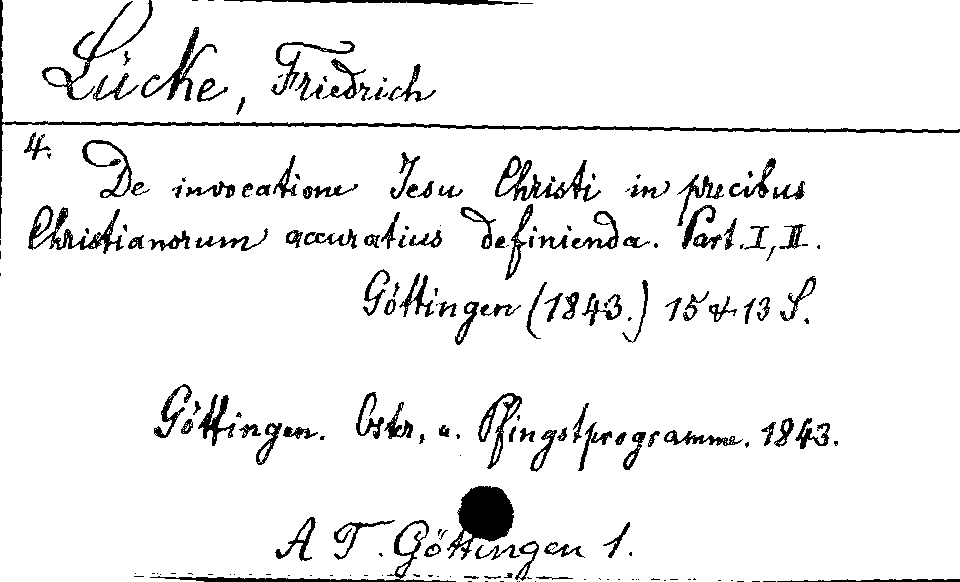 Lücke, Friedrich
4.
De invocatione Jesu Christi in precibus
Christianorum accuratius definienda. Part. I, II.
Göttingen (1843.) 15 & 13 S.
Göttingen. Oster, u. Pfingstprogramme. 1843.
A T. Göttingen 1.